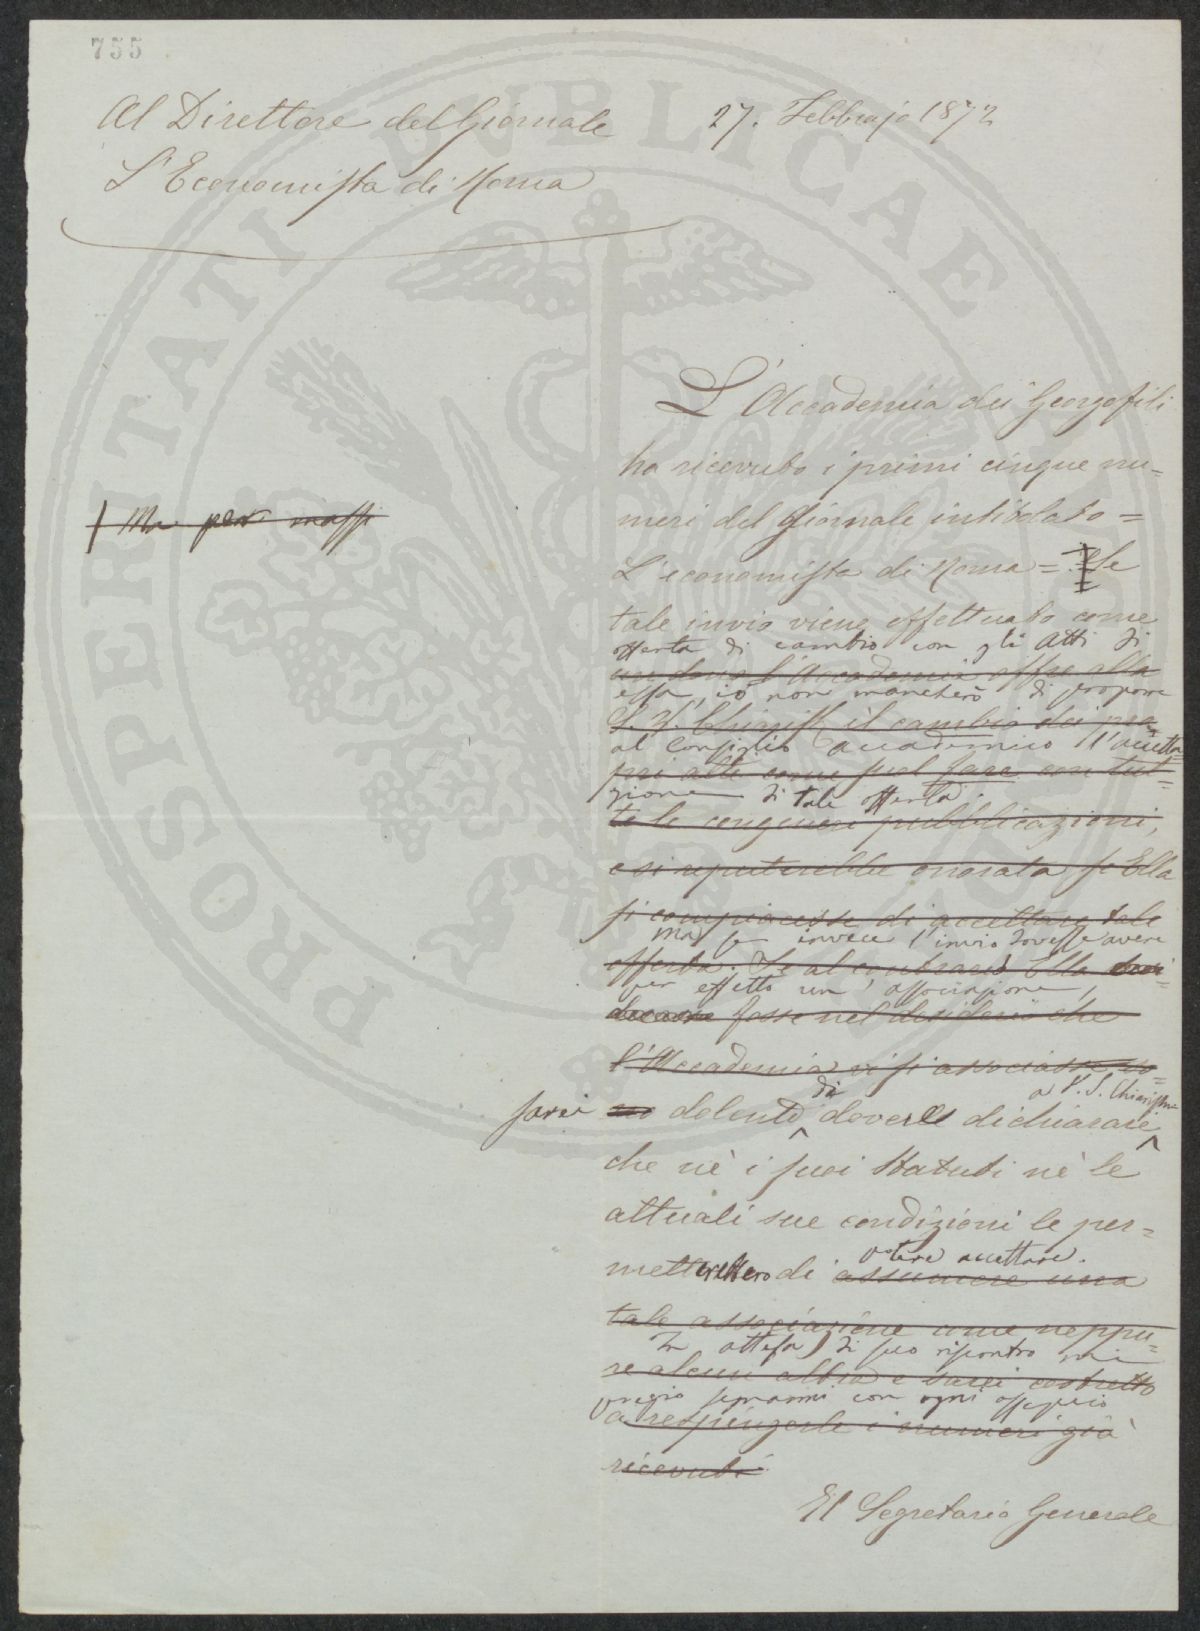 755
Al Direttore del Giornale
L'Economista di Roma
27. Febbrajo 1872
L'Accademia dei Georgofili
ha ricevuto i primi cinque nu=
meri del Giornale intitolato =
Ma per
L'economista di Roma = Se
tale invio viene effettuato come
offerta di cambio con gli Atti di
un dono l'Accademia offre alla
essa, io non mancherò di proporre
S. V. Chiariss. il cambio dei pro
al Consiglio accademico l'accetta=
pri atti come suol fare con tut=
zione di tale offerta.
te le congeneri pubblicazioni,
e si reputerebbe onorata se Ella
si compiacesse di accettare tale
ma se invece l'invio dovesse avere
offerta. Se al contrario Ella
per effetto un'associazione,
fosse nel desiderio che
l'Accademia vi si associasse
sarei dolente di dovere dichiarare
a V. S. Chiarissma
che nè i suoi Statuti nè le
attuali sue condizioni le per=
metterebbero di potere accettare.
assumere una
tale associazione come neppu=
In attesa di suo riscontro mi
re alcun altra e sarei costretto
pregio segnarmi con ogni ossequio
a respingerle i numeri già
ricevuti
Il Segretario Generale
PROSPERITATI PUBLICAE